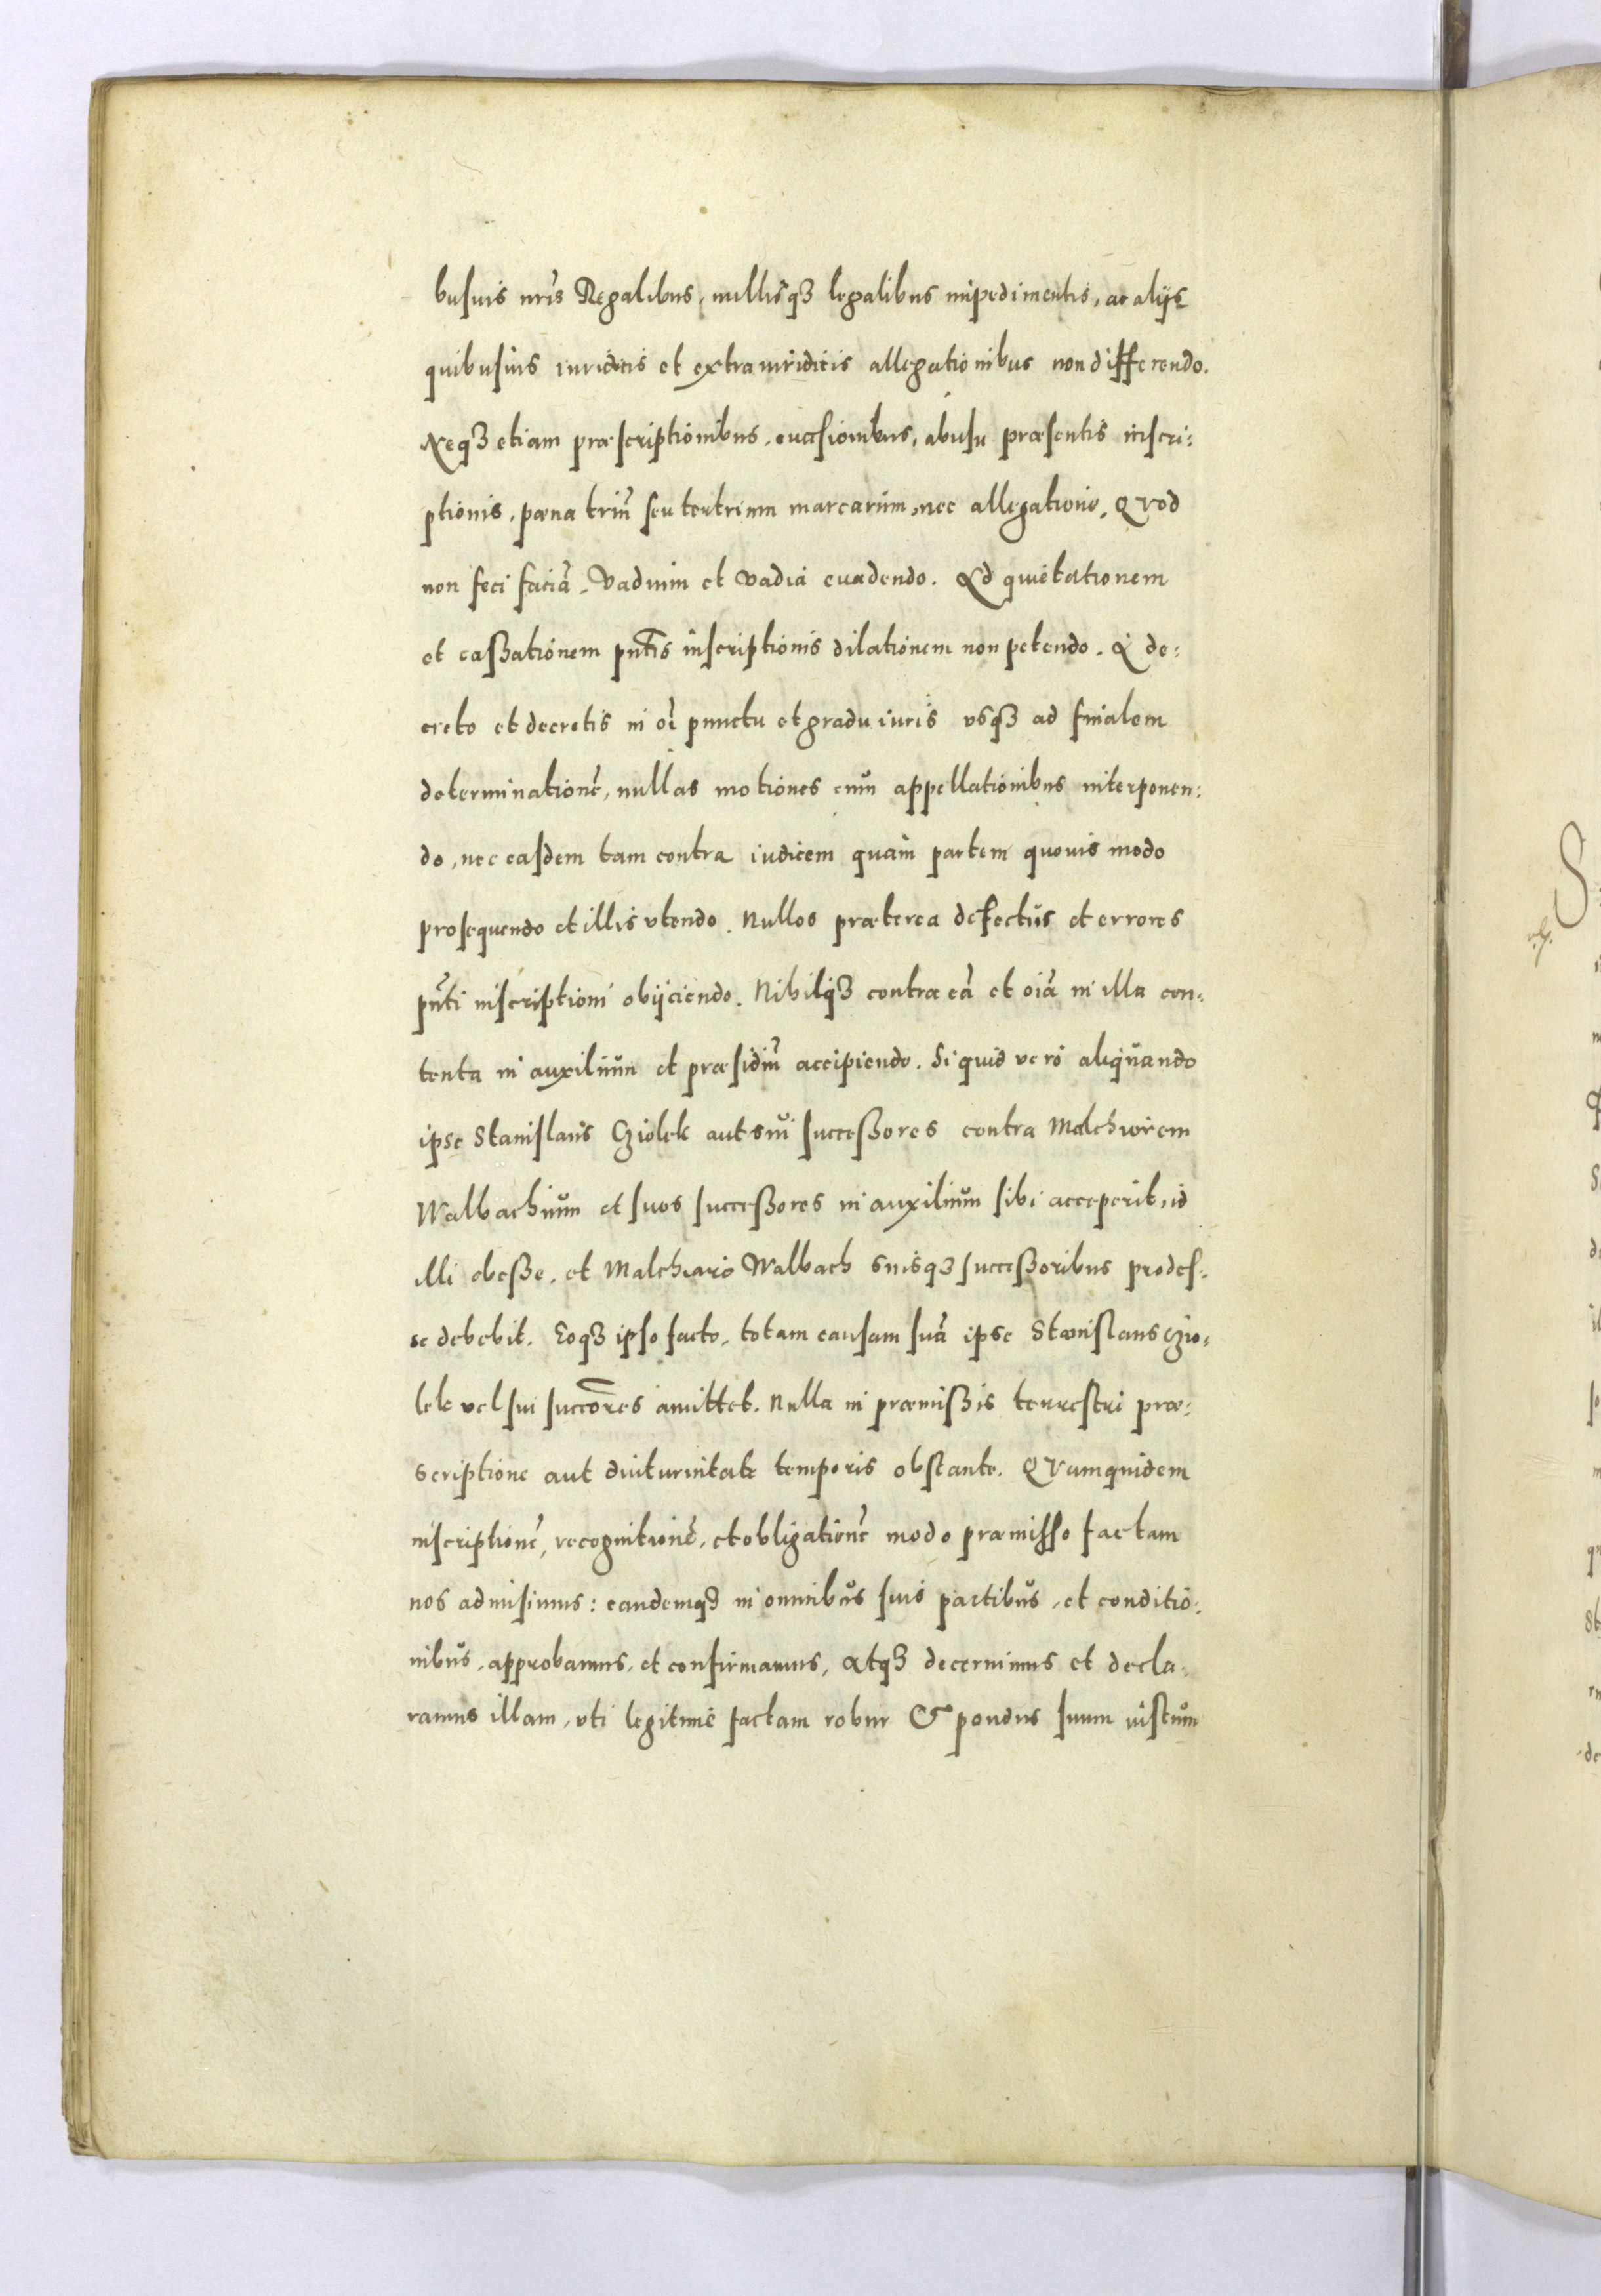 busuis nrĩs Regalibus, nullisqȝ legalibus impedimentis, ac alijs
quibusuis iuridicis et extraiuridicis allegationibus non differendo.
Neqȝ etiam præscriptionibus, euasionibus, abusu præsentis inscri:
ptionis, pæna triũ seu tertrium marcarum, nec allegatione, Quod
non feci faciã, Vadium et vadia euadendo. Ad quietationem
et caßationem pñtis inscriptionis dilationem non petendo. A de:
creto et decretis in oĩ punctu et gradu iuris vsqȝ ad finalem
determinationẽ, nullas motiones cum appellationibus interponen:
do, nec easdem tam contra iudicem quam partem quouis modo
prosequendo et illis vtendo. Nullos præterea defectus et errores
pñti inscriptioni obijciendo. Nihilqȝ contra eã et oĩa in illa con:
tenta in auxilium et præsidiũ accipiendo. Si quid vero aliquando
ipse Stanislaus Cziolek aut sui succeßores contra Malchiorem
Walbachium et suos succeßores in auxilium sibi acceperit, id
illi obeße, et Malchiaro Walbach suisqȝ succeßoribus prodes:
se debebit. Eoqȝ ipso facto, totam causam suã ipse Stanislaus Czio:
lek vel sui succõres amittet. Nulla in præmißis terrestri præ:
scriptione aut diuturnitate temporis obstante. QVamquidem
inscriptionẽ, recognitionẽ, et obligationẽ modo præmisso factam
nos admisimus: eandemqȝ in omnibus suis partibus, et conditio:
nibus, approbamus, et confirmamus, atqȝ decernimus et decla:
ramus illam, vti legitime factam robur & pondus suum iustum